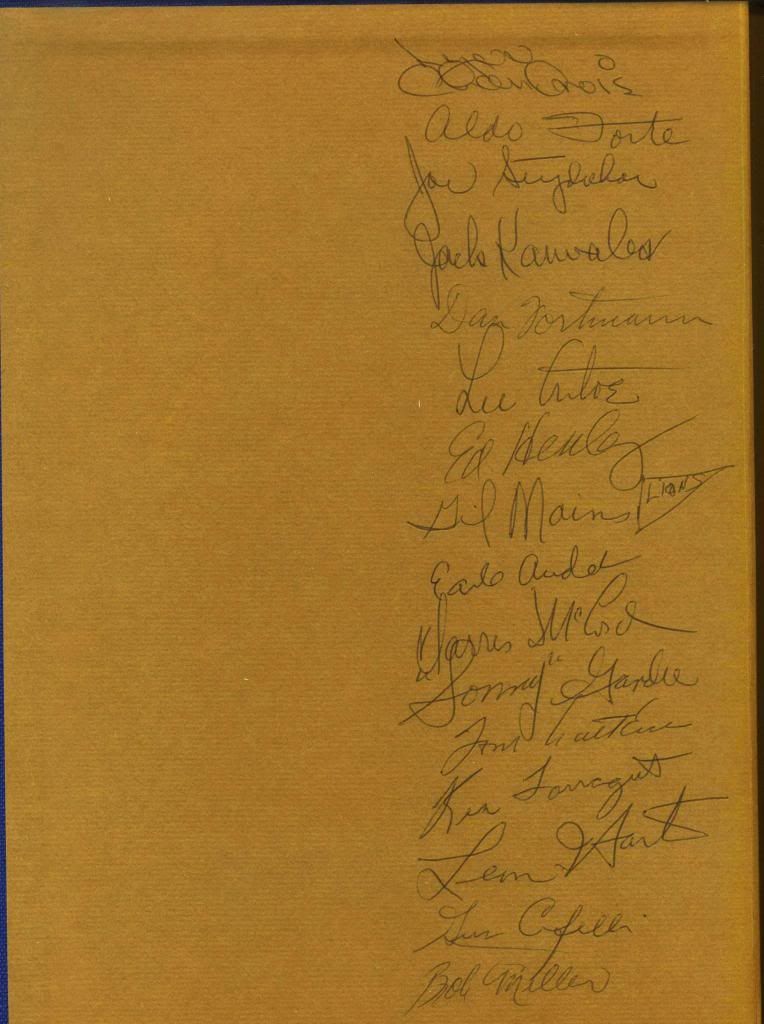 Aldo Forte
Joe Stydahar
Jack Karwales
Dan Fortmann
Lee Artoe
Ed Henley
Gil Mains LIONS
Earl Audet
Darris McCord
"Sonny" Gandee
Tom Watkins
Ken Farragut
Leon Hart
Gus Cifelli
Bob Miller